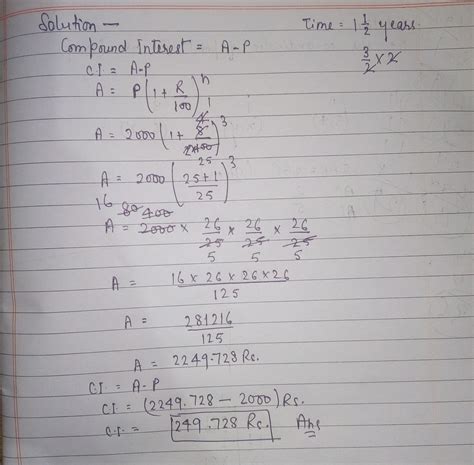 Solution —
Time = 1 1/2 years.
3/2 × 2
Compound Interest = A-P
C.I. = A-P
A = P(1 + R/100)^n
A = 2000(1 + 8/2×100)^3
4 1 25
A = 2000(25+1/25)^3
16 80 400
A = 2000 × 26/25 × 26/25 × 26/25
5 5 5
A = 16 × 26 × 26 × 26/125
A = 281216/125
A = 2249.728 Rs.
C.I. = A-P
C.I. = (2249.728 — 2000) Rs.
C.I. = 249.728 Rs. Ans